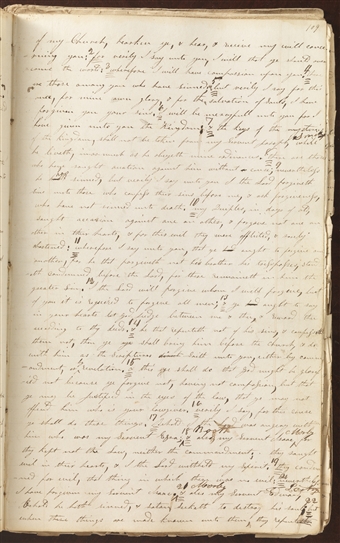 109
of my Church, hearken ye, & hear, & receive my will concer
ning you; 2 for verily I say unto you, I will that ye should over
come the world; wherefore I will have compassion upon you
those among you who have sinned; but verily I say for this
once, for mine own glory & for the salvation of souls, I have
forgiven you your sins. I will be mercifull unto you for I
have given unto you the kingdom: & the keys of the mysteries
of the kingdom, shall not be taken from my servant Joseph, while
he liveth, inasmuch as he obeyeth mine ordinances. There are those
who have sought occasion against him without cause; nevertheless
he sinned, but verily I say unto you I the Lord forgiveth
sins unto those who confess their sins before me, & ask forgiveness,
who have not sinned unto death. 10 my disciples, in days of old,
sought occasion against one another, & forgave not one an
other in their hearts, & for this evil they were afflicted, & sorely
chastened; 11 wherefore I say unto you, that ye ought to forgive one
another, for he that forgiveth not his brother his trespasses, stand
eth condemned before the Lord, for there remaineth in him the
greater sin. I the Lord will forgive whom I will forgive, but
of you it is required to forgive all men; & ye ought to say
in your hearts let God judge between me & thee, & reward thee
according to thy deeds. 14 & he that repenteth not of his sins, & confesseth
them not, then ye shall bring him before the Church, & do
with him as the scriptures saith unto you, either by comm
andment, or revelation. 15 & this ye shall do that God might be glorif
ied not because ye forgive not, having not compassion, but that
ye may be justified in the eyes of the law, that ye may not
offend him who is your lawgiver. 16 verily I say, for this cause
ye shall do these things. 17 & behold I the Lord was angry with
him who was my servant Ezra, & also my servant Isaac, for
they kept not the law, neither the commandment; they sought
evil in their hearts, & I the Lord withheld my Spirit. 19 they condem
ned for evil, that thing in which there was no evil;
I have forgiven my servant Isaac. & also my servant Edward
behold he hath sinned, & satan seeketh to destroy his soul
when these things are made known unto them, they repent